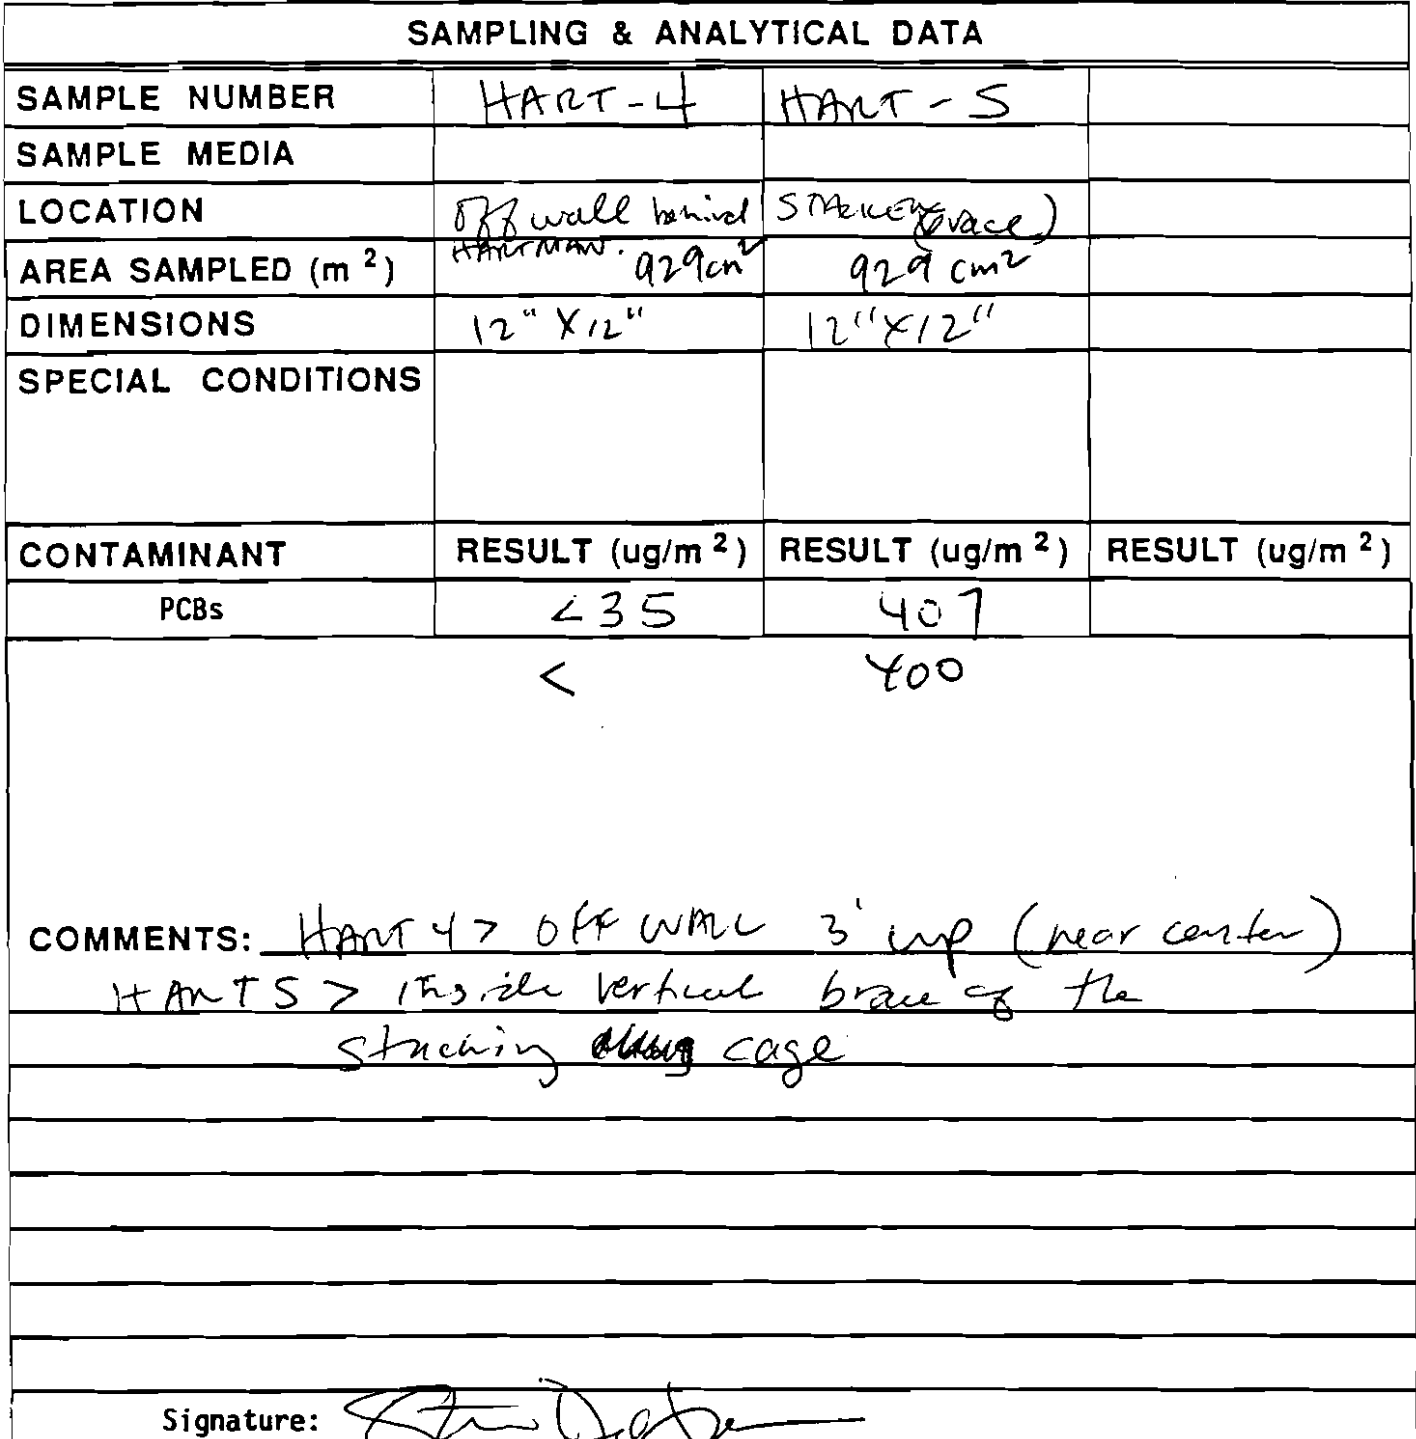 SAMPLING & ANALYTICAL DATA
SAMPLE NUMBER HART-4 HART-5
SAMPLE MEDIA
LOCATION Off wall behind HARTMAN. STACKER (brace)
AREA SAMPLED (m 2) 929cm2 929 cm2
DIMENSIONS 12" X 12" 12" X 12"
SPECIAL CONDITIONS
CONTAMINANT RESULT (ug/m 2) RESULT (ug/m 2) RESULT (ug/m 2)
PCBs <35 407
< 400
COMMENTS: HART 4 > OFF WALL 3' up (near center)
HART 5 > Inside vertical brace of the
stacking cage
Signature: